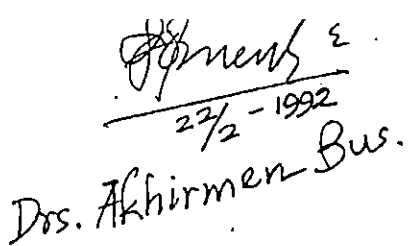 22/2 - 1992
Drs. Akhirmen Bus.